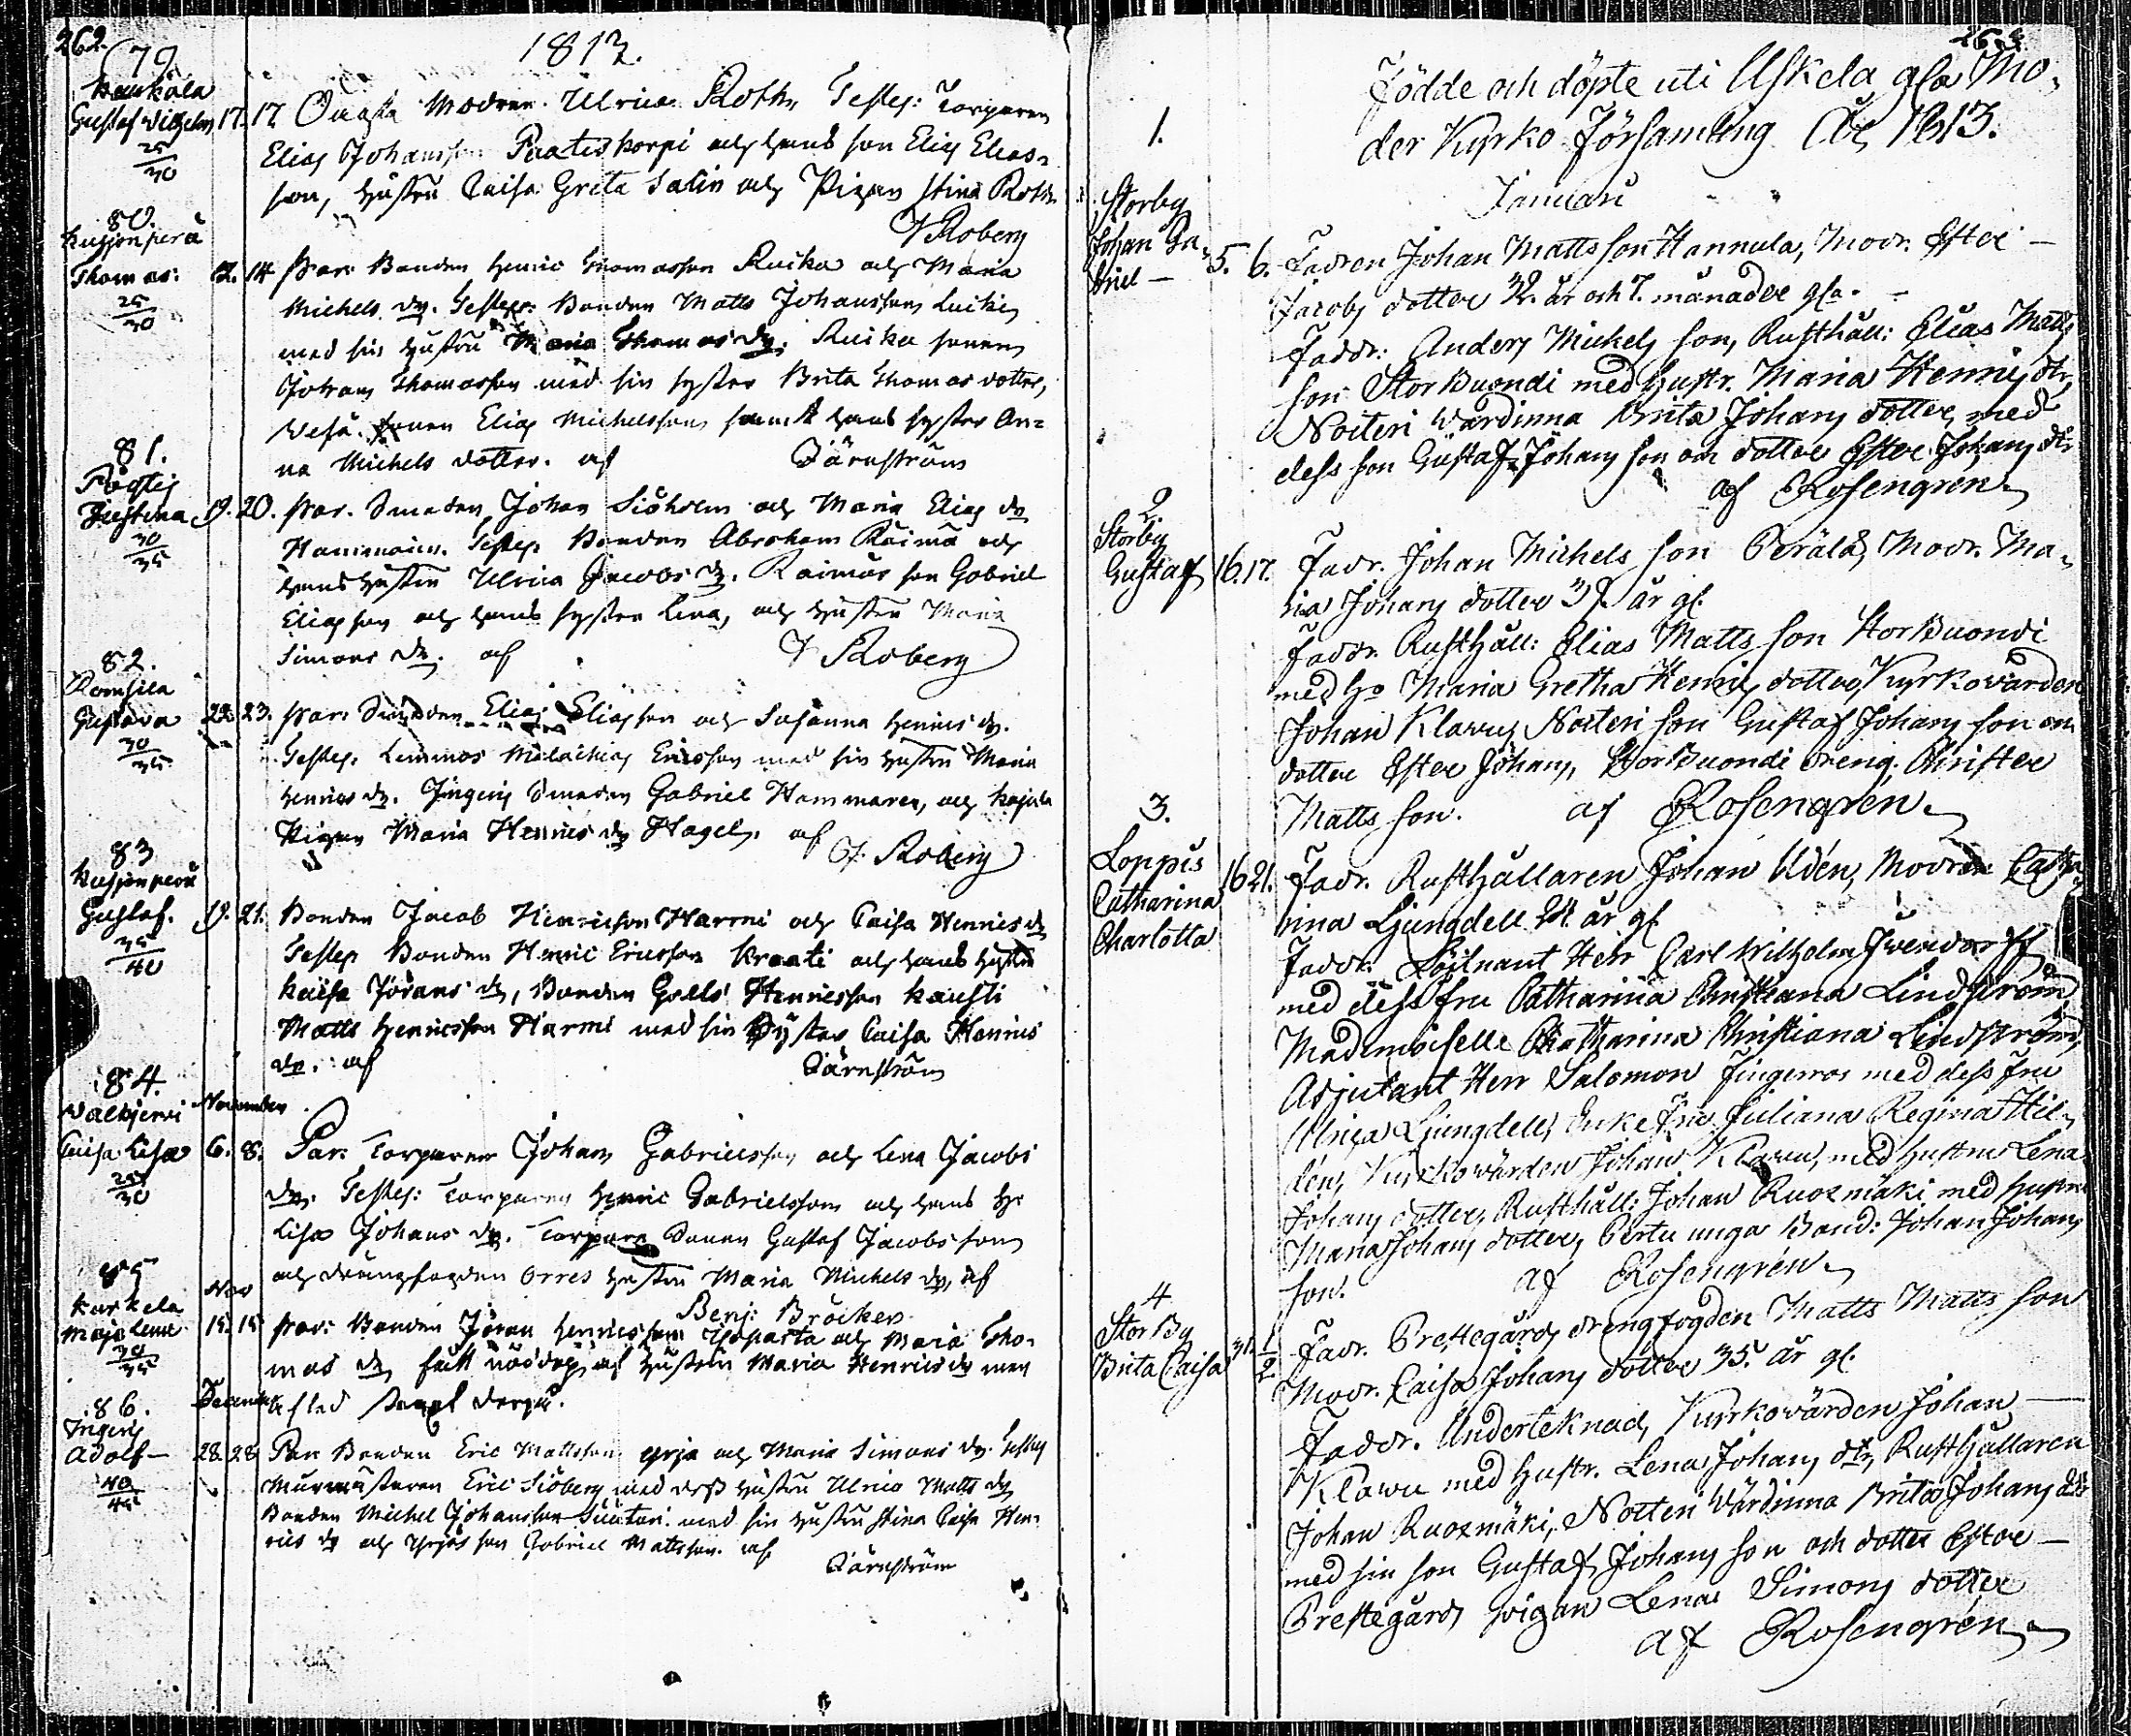 262.
1812.
79
Kaukola
Gustaf Wilhelm 17. 17. Oägta Modren Ulrica Roth, Testes: Torparen
25/30
Elias Johansson och hans son Elias Elias-
son, hustru Caisa Greta Salin och Pigan Stina Roth.
J Roberg
80.
Kusjonperä
Thomas. 12. 14 Par: Bonden Henric Thomasson Ruika och Maria
25/30
Michels dr. Testes: Bonden Matts Johansson
med sin hustru Maria Thomas dr. Ruika sonen
Johan Thomasson med sin syster Brita Thomas dotter,
sonen Elias Michelsson samt hans syster An=
na Michels dotter. af Järnström
81.
Justina 19. 20. Par. Smeden Johan Siöholm och Maria Elias dr
30/35
Testes Bonden Abraham Raimä och
hans hustru Ulrica Jacobs dr. Raimäs son Gabriel
Eliasson och hans syster Lena, och hustru Maria
Simons dr. af J Roberg
82.
Romsila
Gustava 22. 23. Par: Smeden Elias Eliasson och Susanna Henrics dr.
30/35
Testes. Malachias Ericsson med sin hustru Maria
Henrics dr. Ingeris Smeden Gabriel Hammaren, och
Pigan Maria Henrics dr Hagel. af
J. Roberg
83
Kusjonperä
Gustaf. 19. 21. Bonden Jacob Henricsson Harmi och Caisa Henrics dr
35/40
Testes Bonden Henric Ericsson Kraati och hans hustru
Kaisa Jörans dr, Bonden Henricsson Kausti
Matts Henricsson Harmi med sin Syster Caisa Henrics
dr. af Järnström
84.
November
Caisa Lisa 6. 8. Par: Torparen Johan Gabrielsson och Lena Jacobs
25/30
dr. Testes: Torparen Henric Gabrielsson och hans hr
Lisa Johans dr. Torpare Sonen Gustaf Jacobsson
och drängfogden Orres hustru Maria Michels dr, af
Benj: Bröcker
85
Nov
Karkela
Maja Lena 15. 15 Par: Bonden Jöran Henricsson och Maria Tho-
30/35
mas dr fått nöddop af hustru Maria Henrics dr men
afled
86.
December
Ingeris
Adolf — 28. 28 Par Bonden Eric Mattsson Yrjä och Maria Simons dr. Testes
40/45
Murmästaren Eric Siöberg med dess hustru Ulrica Matts dr
Bonden Michel Johansson Suutari med sin hustru Stina Caisa Hen-
rics dr och Yrjäs son Gabriel Mattsson. af
Järnström
263
Födde och döpte uti Uskela gla Mo-
der Kyrko Församling År 1813.
Januari
1.
Storby
Johan Ga-
briel — 5. 6. Fadren Johan Matts son Hannula, Modr. Ester —
Jacobs dotter 32. år och 7. månader gla.
Faddr: Anders Michels son, Rusthåll: Elias Matts
son StorBuondi med hustr. Maria Henrics dtr,
Noiteri Wärdinna Brita Johans dotter, med
dess son Gustaf Johans son och dotter Ester Johans dtr
af Rosengrén
2.
Storby
Gustaf 16. 17. Fadr. Johan Michels son Perälä, Modr. Ma-
ria Johans dotter 37. år gl.
Faddr. Rusthåll: Elias Matts son StorBuondi
med hr Maria Gretha Henrics dotter, Kyrkovärden
Johan Klawus, Noiteri son Gustaf Johans son och
dotter Ester Johans, StorBuondi dreng. Christer
Matts son. af Rosengrén.
3.
Loppis
Catharina
Charlotta
16 21. Fadr. Rusthållaren Johan Udén, Modren Catha-
rina Ljungdell 24. år gl
Faddr: Löjtnant Herr Carl Wilhelm
med dess fru Catharina Christiana Lindström,
Mademoiselle Catharina Christiana Lindström,
Adjutant Herr Salomon Fingerroos med dess fru
Ulrica Ljungdell, Enke Fru Juliana Regina Hil-
dén, Kyrkovärden Johan Klawu, med hustru Lena
Johans dotter, Rusthåll: Johan Ruozmäki med hustru
Maria Johans dotter, Pertu unga Bond: Johan Johans
son. af Rosengrén
4
StorBy
Brita Caisa 31. 1/2 Fadr. Prestegårds drengfogden Matts Matts son
Modr. Caisa Johans dotter 35. år gl.
Faddr. Underteknad, Kyrkovärden Johan —
Klawu med hustr. Lena Johans dtr, Rusthållaren
Johan Ruozmäki, Noiteri Wärdinna Brita Johans dtr
med sin son Gustaf Johans son och dotter Ester —
Prestegårds pigan Lena Simons dotter
af Rosengrén